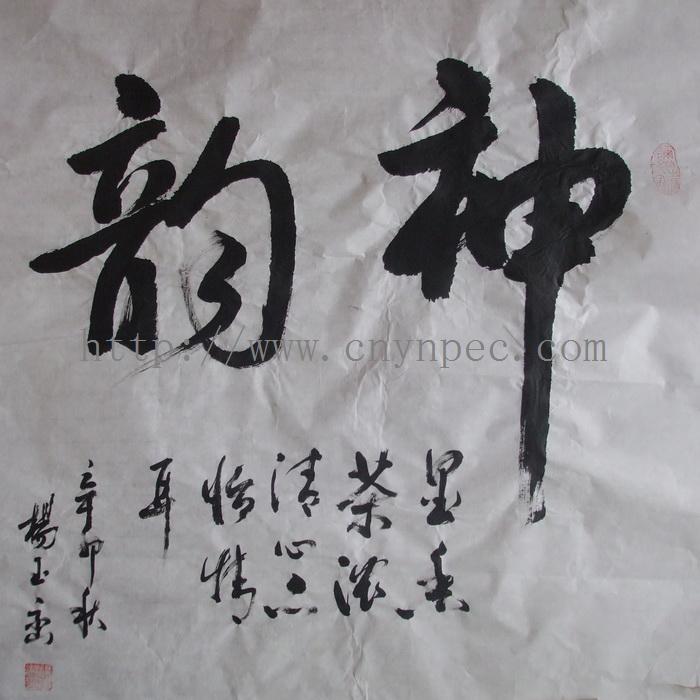 神韵
墨香
茶浓
清心亦
怡情
耳
辛卯秋
楊玉
http://www.cnynpec.com